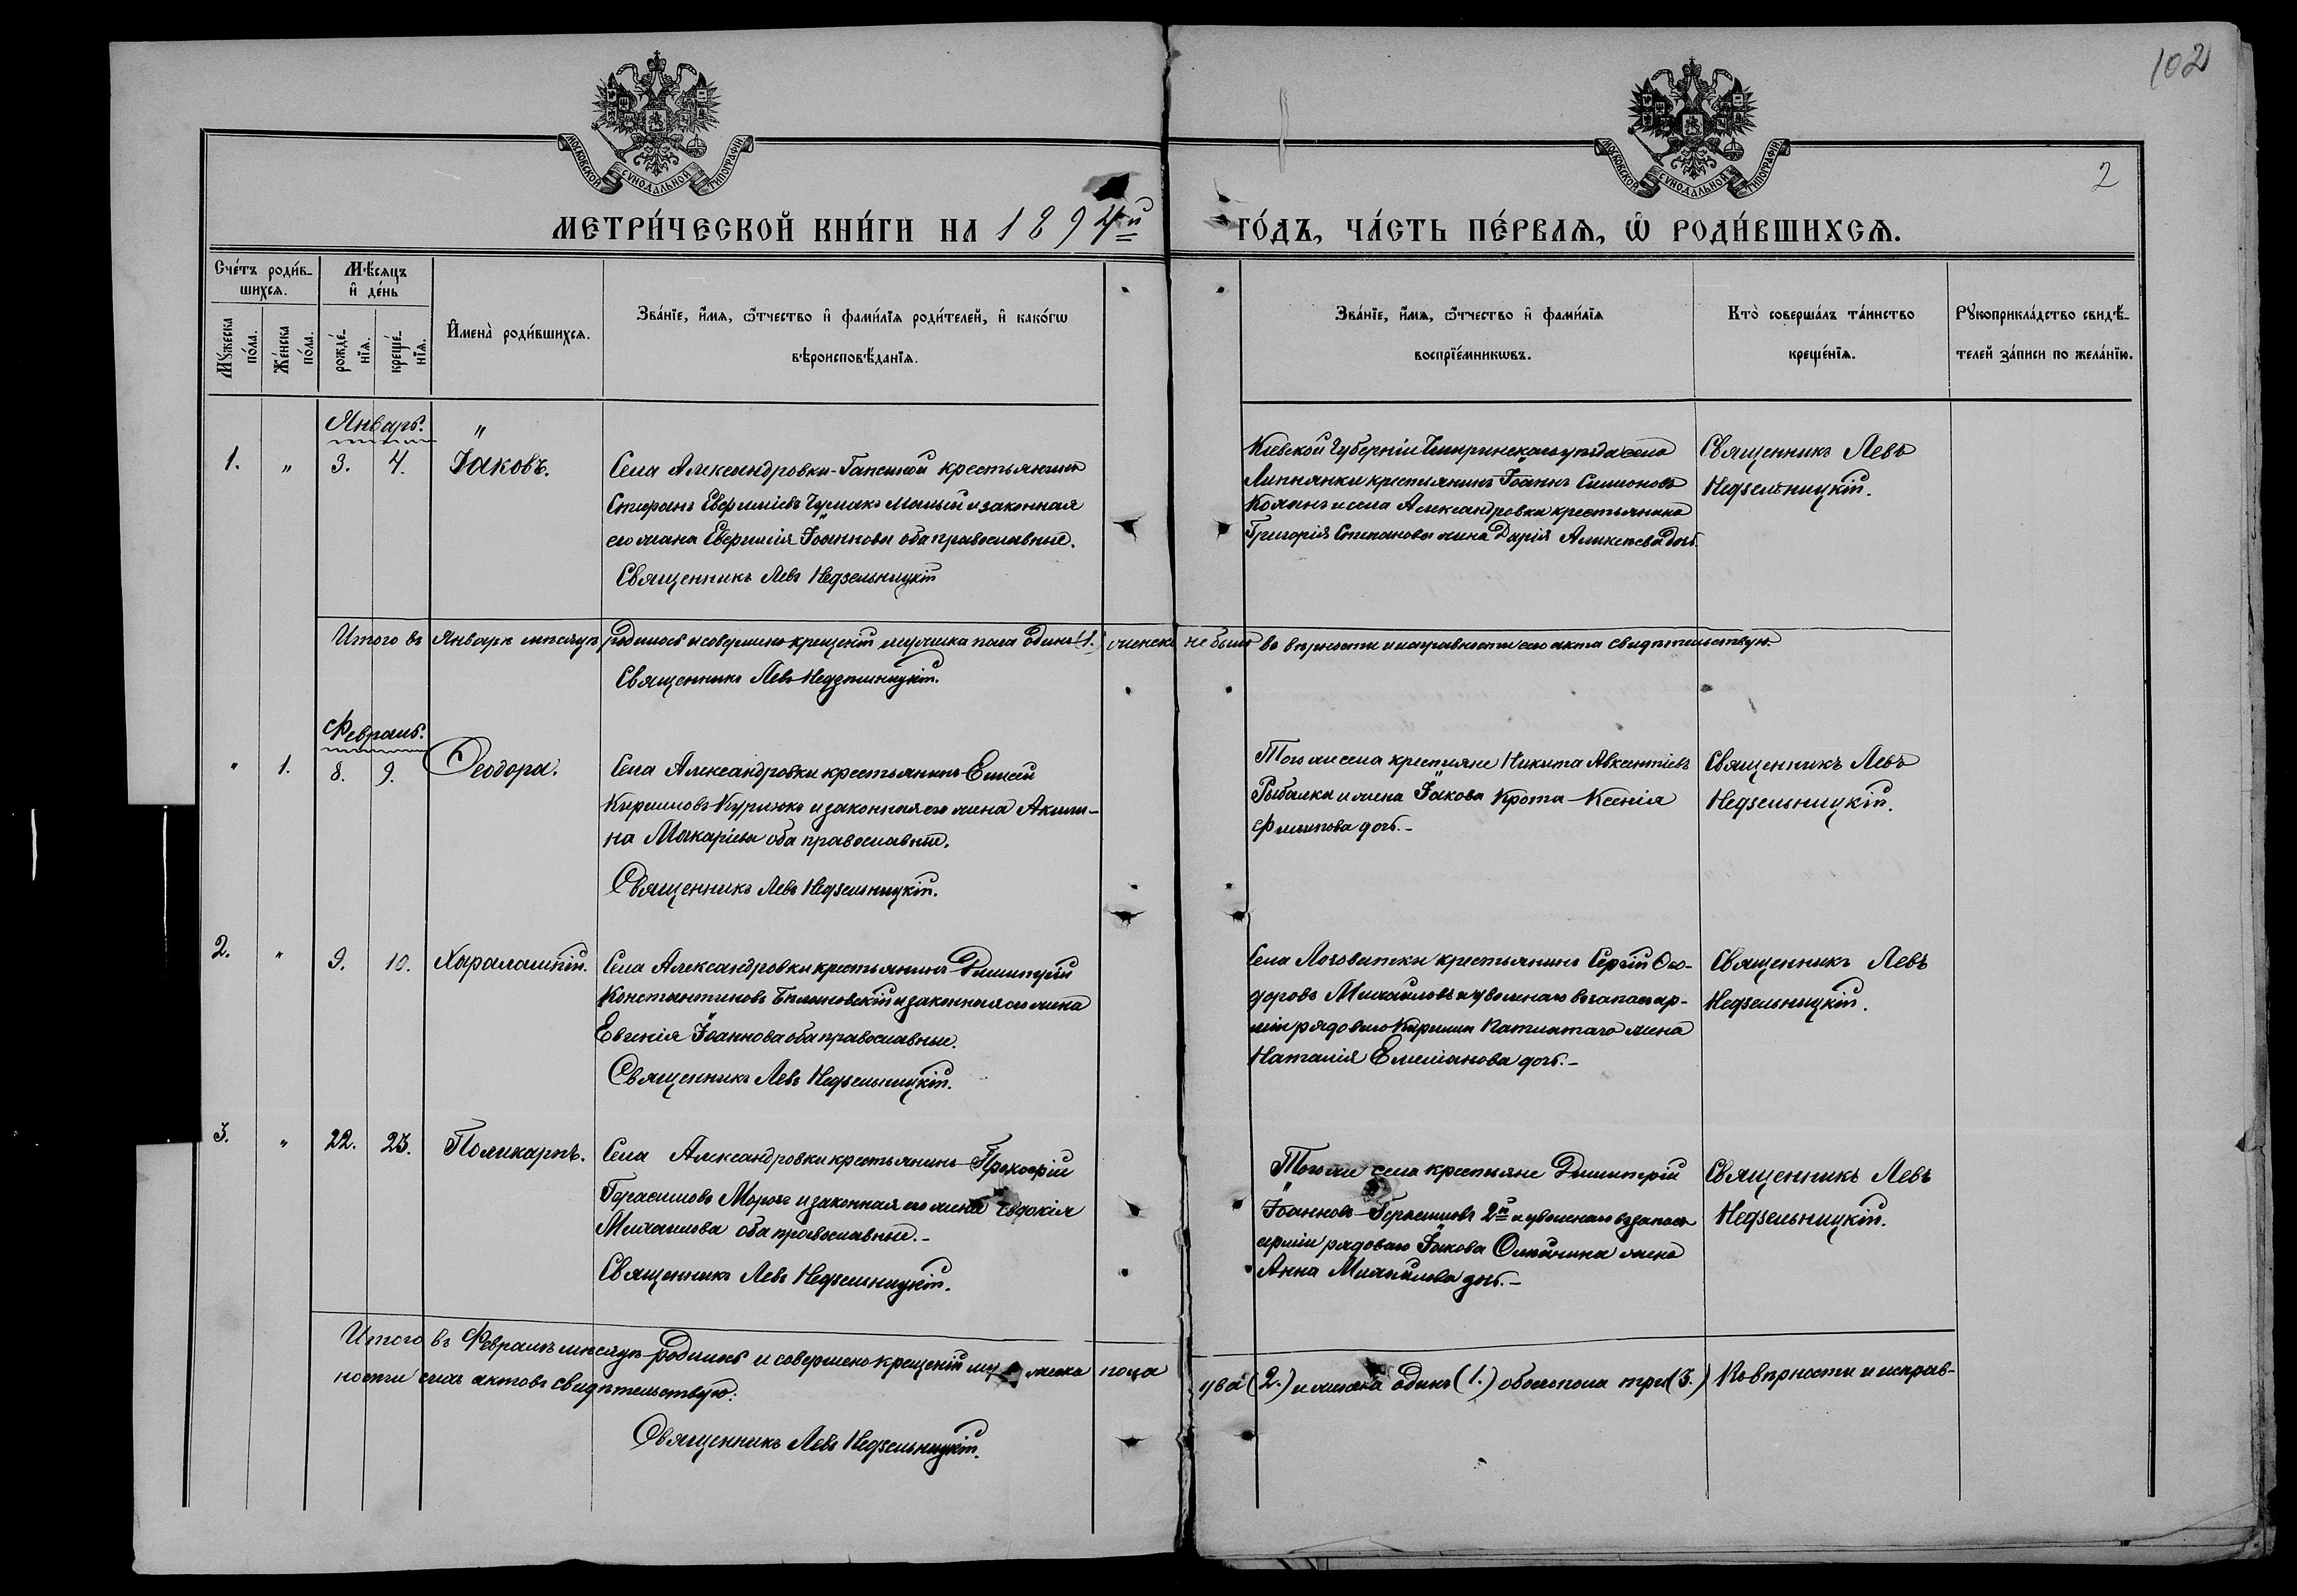 102
2
МОСКОВСКОЙ СУНОДАЛЬНОЙ ТИПОГРАФІИ
МОСКОВСКОЙ СУНОДАЛЬНОЙ ТИПОГРАФІИ
МЕТРИ́ЧЕСКОЙ КНИ́ГИ НА 1894й ГО́ДЪ, ЧА́СТЬ ПЕ́РВАѦ, Ѡ҆ РОДИ́ВШИХСѦ.
Сче́тъ роди́в-
шихсѧ.
Мꙋжеска по́ла.
Же́нска по́ла.
Мѣ́сѧцъ
и҆ де́нь
рожде́-нїѧ.
креще́-нїѧ.
И҆мена̀ роди́вшихсѧ.
Зва́нїе, и҆́мѧ, ѻ҆́тчество и҆ фами́лїѧ роди́телей, и҆ како́гѡ
вѣроисповѣ́данїѧ.
Зва́нїе, и҆́мѧ, ѻ҆́тчество и҆ фами́лїѧ
воспрїе́мникѡвъ.
Кто̀ соверша́лъ та́инство
креще́нїѧ.
Рꙋкоприкла́дство свидѣ́-
телей за́писи по жела́нїю.
Январь. "
1. " 3. 4. Іаковъ.
Села Александровки- крестьянинъ
Стефанъ Евфиміевъ Чумакъ Малый и законная
его жена Евфимія Іоаннова оба православные.
Священникъ Левъ Недзельницкій
Кіевской Губерніи Чигиринскаго уѣзда села
Липнянки крестьянинъ Іоаннъ Симеоновъ
и села Александровки крестьянина
Григорія Степанова жена Дарія Алексѣева дочь.
Священникъ Левъ
Недзельницкій.
Итого въ Январѣ мѣсяцѣ родилось и совершено крещеній мужска пола одинъ (1.) женска не было въ вѣрности и исправности сего акта свидѣтельствую.
Священникъ Левъ Недзельницкій.
Февраль.
" 1. 8. 9. Ѳеодора.
Села Александровки крестьянинъ Елисей
Кирилловъ Курилюкъ и законная его жена Акили-
на Макаріева оба православные.
Священникъ Левъ Недзельницкій.
Того же села крестьяне Никита Авксентіевъ
Рыбалка и жена Іакова Крота Ксенія
Филипова дочь.-
Священникъ Левъ
Недзельницкій.
2. " 9. 10. Харалампій.
Села Александровки крестьянинъ Димитрій
Константиновъ Бѣлиновскій и законная его жена
Евгенія Іоаннова оба православные.
Священникъ Левъ Недзельницкій.
Села Лозоватки крестьянинъ Сергій Ѳео-
доровъ Михайловъ и уволеннаго въ запасъ ар-
міи рядоваго Кирилла жена
Наталія Емеліанова дочь.-
Священникъ Левъ
Недзельницкій.
3. " 22. 23. Поликарпъ.
Села Александровки крестьянинъ Прокофій
Герасимовъ Морозъ и законная его жена Евдокія
Михаилова оба православные.-
Священникъ Левъ Недзельницкій.
Того же села крестьяне Димитрій
Іоанновъ Герасимовъ 2й и уволеннаго въ запасъ
арміи рядоваго Іакова жена
Анна Михайлова дочь.-
Священникъ Левъ
Недзельницкій.
Итого въ Февралѣ мѣсяцѣ родилось и совершено крещеній мужска пола два (2.) и женска одинъ (1.) обоего пола три (3.) Въ вѣрности и исправ-
ности сихъ актовъ свидѣтельствую:
Священникъ Левъ Недзельницкій.